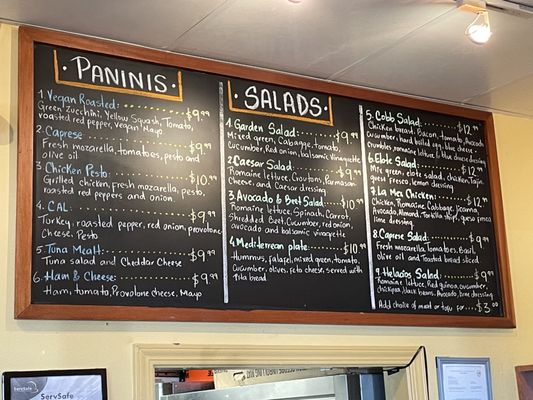 PANINIS
1. Vegan Roasted: $9.99
Green Zucchini, Yellow Squash, Tomato,
roasted red pepper, vegan Mayo
2. Caprese $9.99
Fresh mozzarella, tomatoes, pesto and
olive oil
3 Chicken Pesto $10.99
Grilled chicken, fresh mozzarella, pesto,
roasted red peppers and onion
4. CAL: $9.99
Turkey, roasted pepper, red onion, provolone
Cheese, Pesto
5. Tuna Mealt $9.99
Tuna salad and Cheddar Cheese
6. Ham & Cheese $9.99
Ham, tomato, Provolone cheese, Mayo
SALADS
1. Garden Salad $9.99
Mixed green, Cabbage, tomato,
Cucumber, Red onion, balsamic Vinaigrette
2. Caesar Salad $9.99
Romaine lettuce, Croutons, Parmesan
Cheese, and Caesar dressing
3. Avocado & Beet Salad $10.99
Romaine lettuce, Spinach, Carrot,
Shredded Beet, Cucumber, red onion,
avocado and balsamic vinaigette
4. Mediterrean plate $10.99
Hummus, falafel, mixed green, tomato,
Cucumber, olives, feta cheese, served with
Pita bread
5. Cobb Salad $12.99
Chicken breast, Bacon, tomato, Avocado
Cucumber, hard boiled egg, blue cheese
crumbles, romaine lettuce, blue cheese dressing
6. Elote Salad $12.99
Mix green, elote salad, chicken, Tajin,
queso fresco, lemon dressing
7. La Mex Chicken $12.99
Chicken, Romaine, Cabbage, Jicama,
Avocado, Almond, Tortilla chips, queso fresco
lime dressing
8. Caprese Salad $9.99
Fresh Mozzarella, Tomatoes, Basil,
olive oil and Toasted bread sliced
9. Helacios Salad $9.99
Romaine lettuce, Red quinoa, cucumber,
chickpea, black beans, Avocado, lime dressing
Add choice of meat or tofu for $3.99
ServSafe
ServSafe